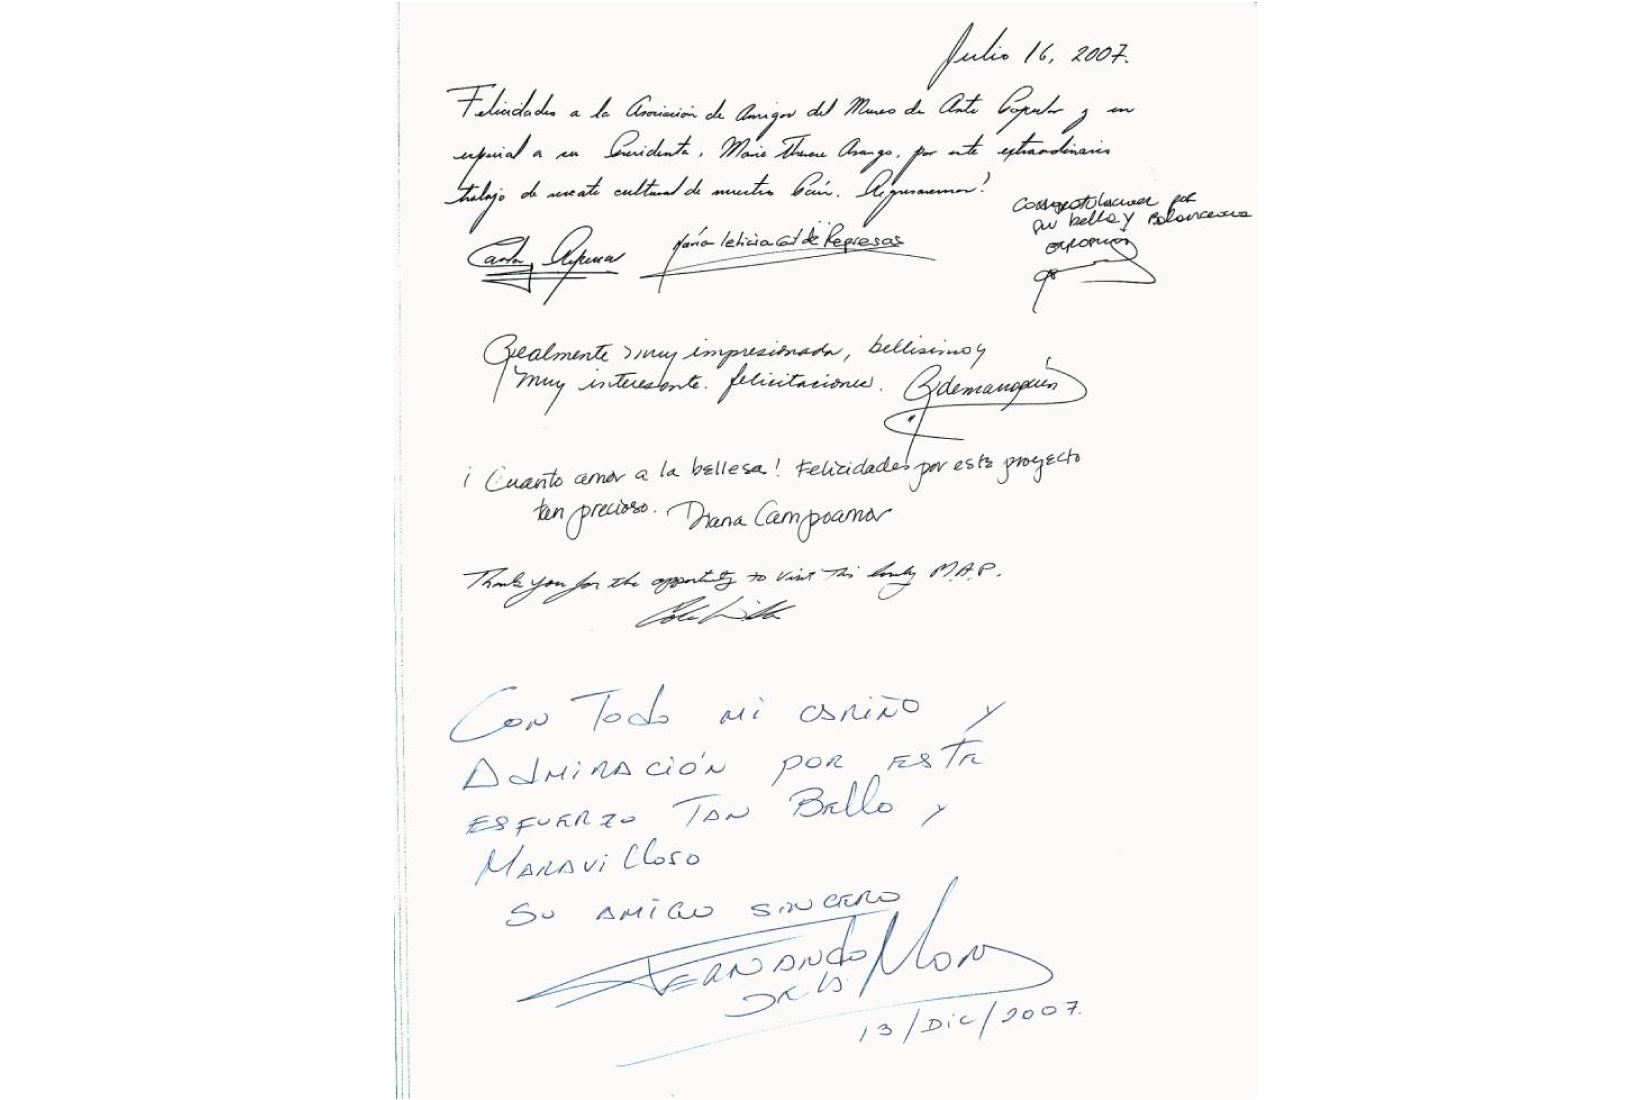 Julio 16, 2007.
Felicidades a la Asociación de Amigos del Museo de Arte Popular y en
especial a su Presidenta, Marie Therese Arango, por este extraordinario
trabajo de rescate cultural de nuestro País. Regresaremos!
María Leticia de Represas
por
su bella y
Realmente muy impresionada, bellisimo y
muy interesante. felicitaciones.
¡Cuanto amor a la bellesa! Felicidades por este proyecto
tan precioso. Diana Campoamor
Thank you for the opportunity to visit this lovely M.A.P.
Con Todo mi cariño y
Admiración por este
esfuerzo Tan Bello y
Maravilloso
Su amigo sincero
Fernando
de la Mora
13/Dic/2007.